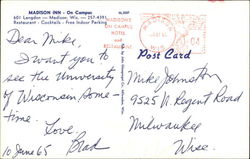 MADISON INN - On Campus
601 Langdon in Madison, Wis. — 257-4391
Restaurant - Cocktails - Free Indoor Parking
MADISON'S
ON CAMPUS
HOTEL
and
RESTAURANT
Post Card
Dear Mike,
I want you to
see the University
of Wisconsin some-
time.
Love,
Brad
10 June 65
Mike Johnston
9525 N. Regent Road
Milwaukee
Wisc.